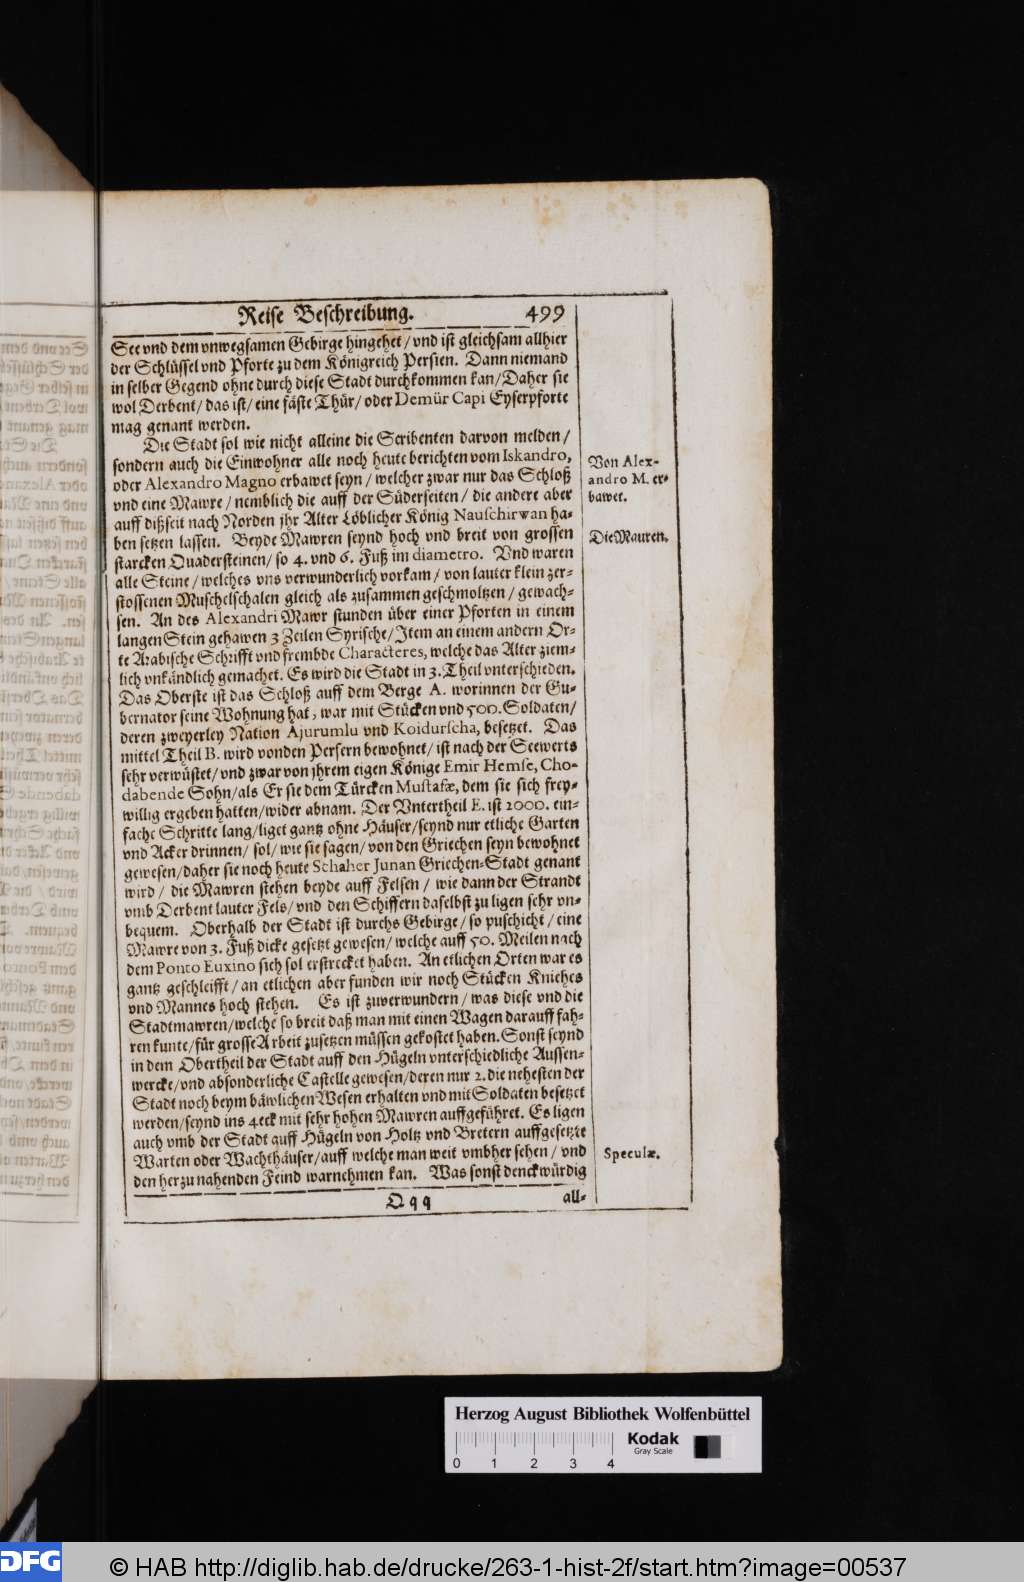 Reise Beschreibung. 499
See vnd dem vnwegsamen Gebirge hingehet / vnd ist gleichsam allhier
der Schlüssel vnd Pforte zu dem Königreich Persien. Dann niemand
in selber Gegend ohne durch diese Stadt durchkommen kan / Daher sie
wol Derbent / das ist / eine fäste Thür / oder Demür Capi Eyserpforte
mag genant werden.
Die Stadt sol wie nicht alleine die Scribenten darvon melden /
sondern auch die Einwohner alle noch heute berichten vom Iskandro,
oder Alexandro Magno erbawet seyn / welcher zwar nur das Schloß
vnd eine Mawre / nemblich die auff der Süderseiten / die andere aber
auff dißseit nach Norden jhr Alter Löblicher König Nauschirwan ha-
ben setzen lassen. Beyde Mawren seynd hoch vnd breit von grossen
starcken Quadersteinen / so 4. vnd 6. Fuß im diametro. Vnd waren
alle Steine / welches vns verwunderlich vorkam / von lauter klein zer-
stossenen Muschelschalen gleich als zusammen geschmoltzen / gewach-
sen. An des Alexandri Mawr stunden über einer Pforten in einem
langen Stein gehawen 3 Zeilen Syrische / Item an einem andern Or-
te Arabische Schrifft vnd frembde Characteres, welche das Alter ziem-
lich vnkändlich gemachet. Es wird die Stadt in 3. Theil vnterschieden.
Das Oberste ist das Schloß auff dem Berge A. worinnen der Gu-
bernator seine Wohnung hat, war mit Stücken vnd 500. Soldaten /
deren zweyerley Nation Ajurumlu vnd Koidurscha, besetzet. Das
mittel Theil B. wird von den Persern bewohnet / ist nach der Seewerts
sehr verwüstet / vnd zwar von jhrem eigen Könige Emir Hemse, Cho-
dabende Sohn / als Er sie dem Türcken Mustafæ, dem sie sich frey-
willig ergeben hatten / wider abnam. Der Vntertheil E. ist 2000. ein-
fache Schritte lang / liget gantz ohne Häuser / seynd nur etliche Garten
vnd Acker drinnen / sol / wie sie sagen / von den Griechen seyn bewohnet
gewesen / daher sie noch heute Schaher Junan Griechen-Stadt genant
wird / die Mawren stehen beyde auff Felsen / wie dann der Strandt
vmb Derbent lauter Fels / vnd den Schiffern daselbst zu ligen sehr vn-
bequem. Oberhalb der Stadt ist durchs Gebirge / so puschicht / eine
Mawre von 3. Fuß dicke gesetzt gewesen / welche auff 50. Meilen nach
dem Ponto Euxino sich sol erstrecket haben. An etlichen Orten war es
gantz geschleifft / an etlichen aber funden wir noch Stücken Kniehes
vnd Mannes hoch stehen. Es ist zuverwundern / was diese vnd die
Stadtmawren / welche so breit daß man mit einen Wagen darauff fah-
ren kunte / für grosse Arbeit zusetzen müssen gekostet haben. Sonst seynd
in dem Obertheil der Stadt auff den Hügeln vnterschiedliche Aussen-
wercke / vnd absonderliche Castelle gewesen / deren nur 2. die nehesten der
Stadt noch beym bäwlichen Wesen erhalten vnd mit Soldaten besetzet
werden / seynd ins 4eck mit sehr hohen Mawren auffgeführet. Es ligen
auch vmb der Stadt auff Hügeln von Holtz vnd Bretern auffgesetzte
Warten oder Wachthäuser / auff welche man weit vmbher sehen / vnd
den herzu nahenden Feind warnehmen kan. Was sonst denckwürdig
Qqq all-
Von Alex-
andro M. er-
bawet.
Die Mauren.
Speculæ.
Herzog August Bibliothek Wolfenbüttel
Kodak
Gray Scale
0 1 2 3 4
DFG
© HAB http://diglib.hab.de/drucke/263-1-hist-2f/start.htm?image=00537